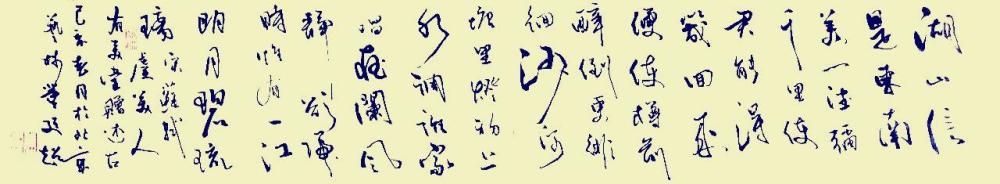 湖山信
是東南
美一望彌
千里使
君能得
幾回來
便使樽前
醉倒更徘
徊沙河
塘里燈初上
水調誰家
唱夜闌風
靜欲歸
時惟有一江
明月碧琉
璃 宋蘇軾
虞美人
有美堂贈述古
己亥春月於北京
藝林